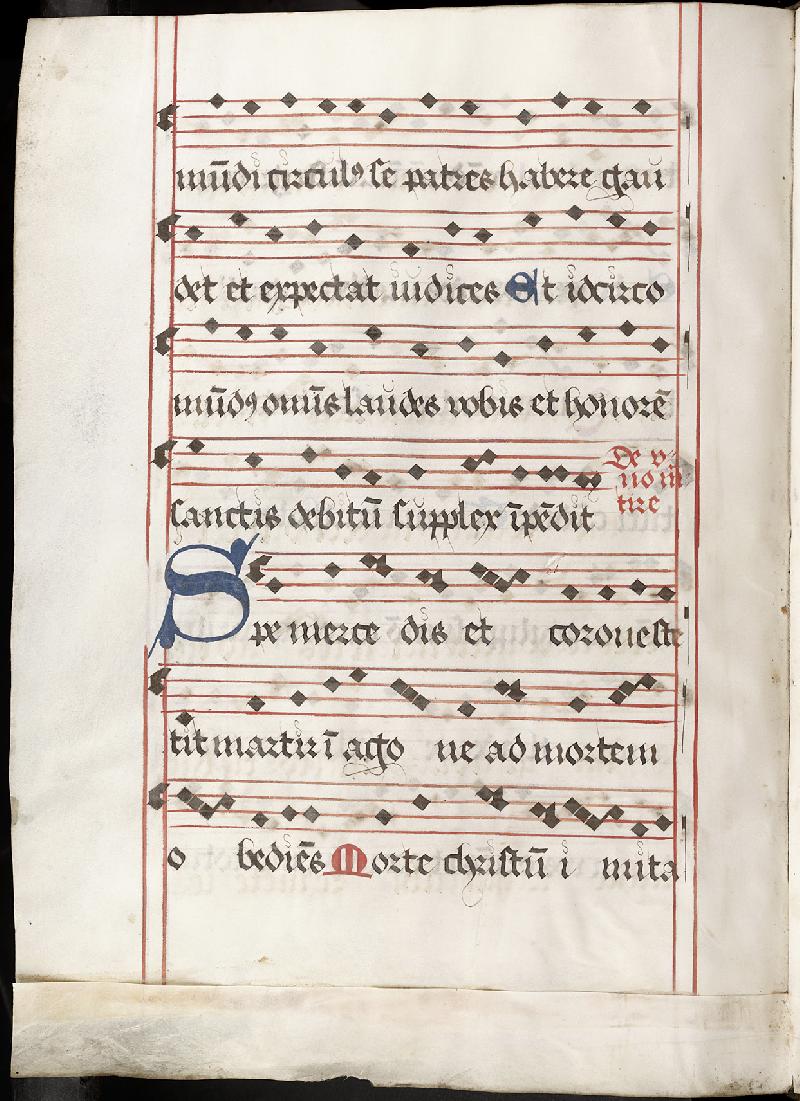 mūdi circulꝰ se patres habere gau
det et expectat iudices Et idcirco
mūdꝰ omīs laudes vobis et honorē
sanctis debitū supplex īpēdit
De v
no m̄
tire
Spe merce dis et corone ste
tit martir ī ago ne ad mortem
o bediēs Morte christū i mita